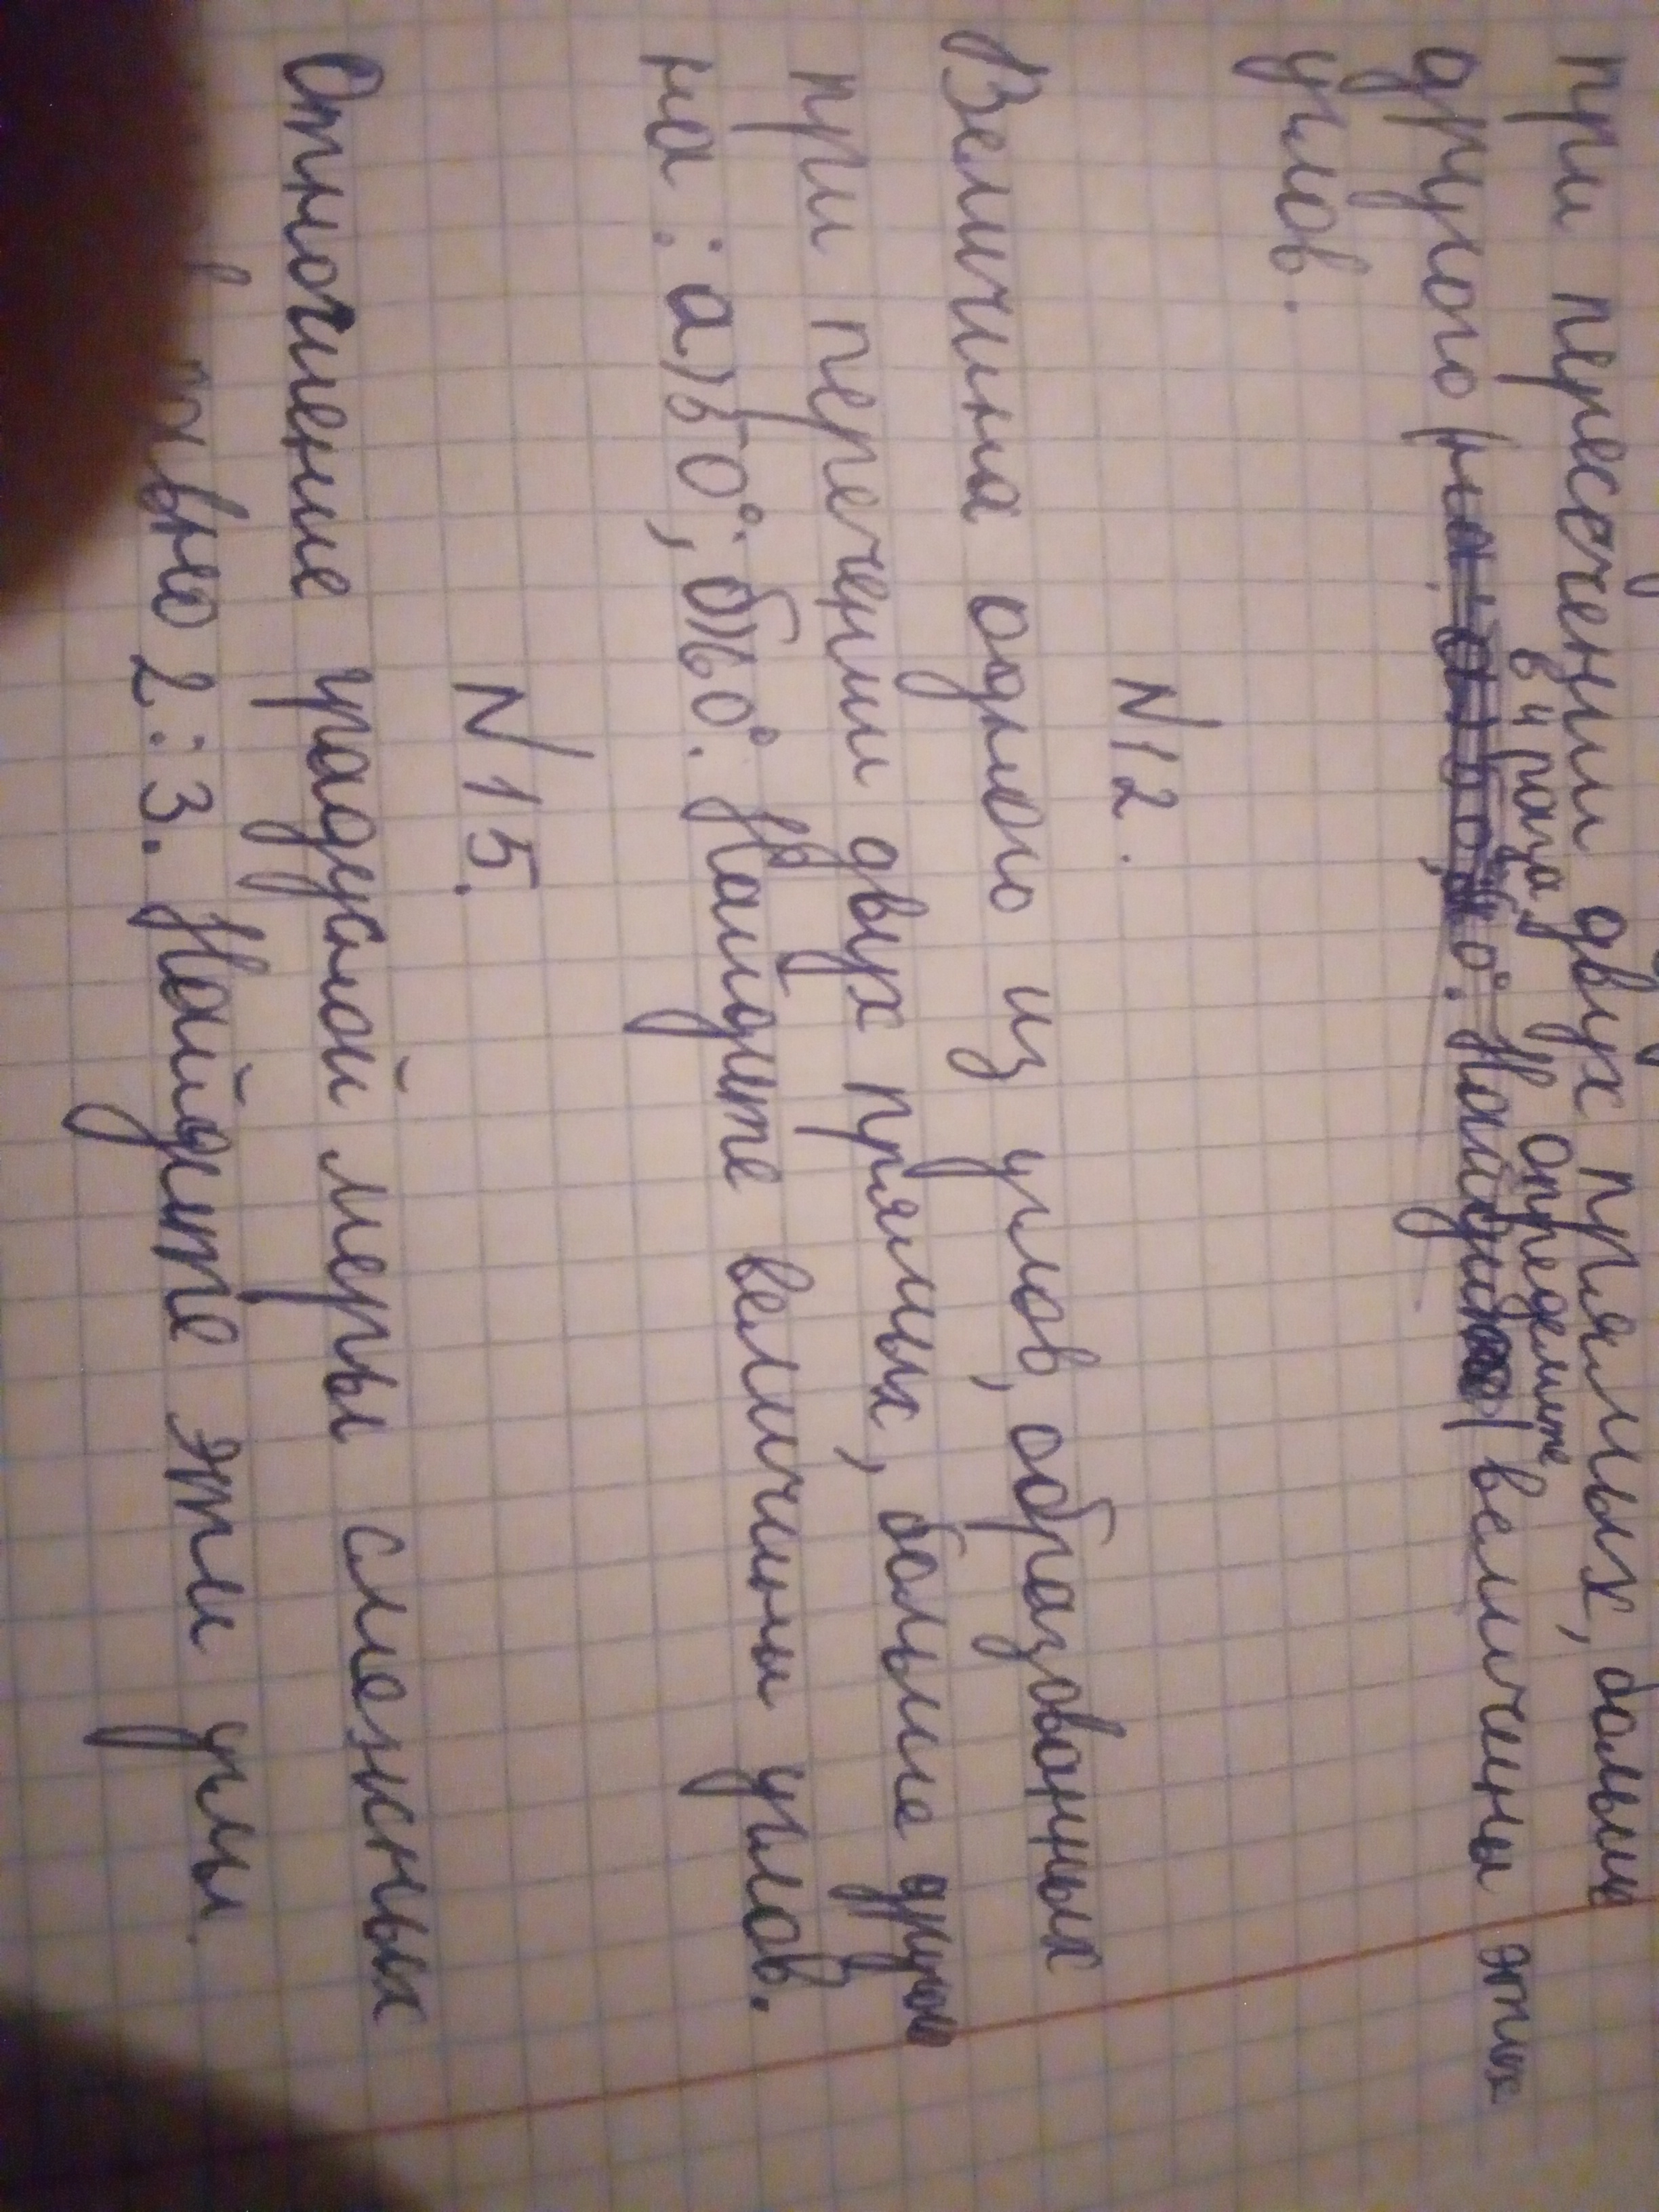 при пересечении двух прямых, больше
в 4 раза определите
другого величены этих
углов.
N12.
Величина одного из углов, образованных
при перечении двух прямых, больше другого
на: а) 50°, б) 60°. Найдите величины углов.
N15.
Отногиение градусной меры смежных
2:3. Найдите эти углы.